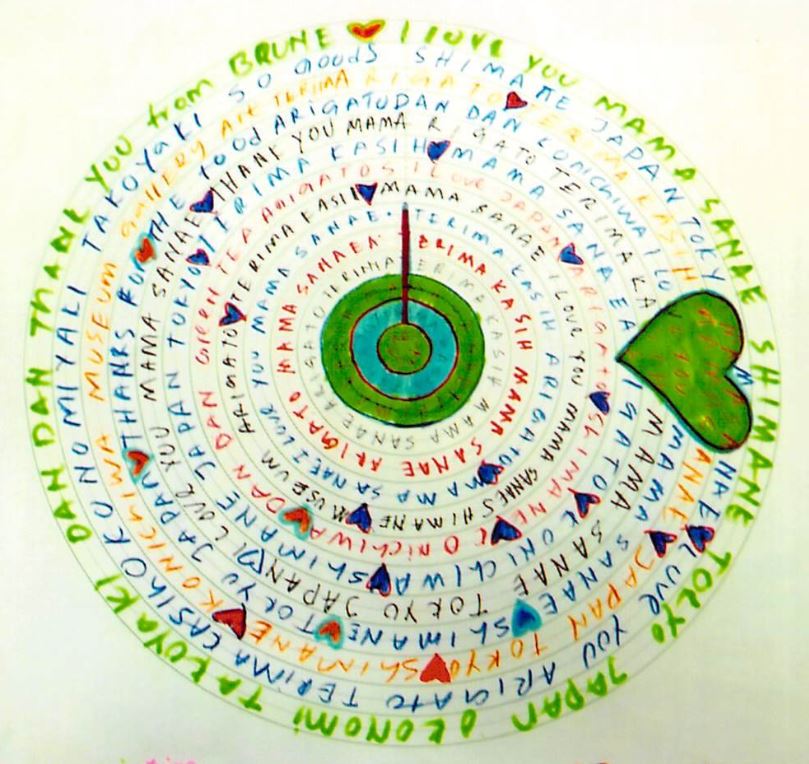 I LOVE YOU MAMA SANAE SHIMANE TOKYO JAPAN OKONOMI TAKOYAKI DAN DAN THANK YOU from BRUNE
SO GOODS SHIMANE JAPAN TOKY
LOVE YOU ARIGATO TERIMA CASIH OKONOMIYAKI TAKOYAKI
TERIMA KASIH
JAPAN TOKYO SHIMANE KONICHIWA MUSEUM GALLERY Art TERIMA
DAN DAN CONICHIWA
MAMA SANAE SHIMANE TOKYO JAPAN THANKS FOR THE Food ARIGATO
TERIMA KA
MAMA SANAE TOKYO JAPAN I LOVE YOU MAMA SANAE THANK YOU MAMA
MAMA SANAE
KONICHIWA SHIMANE JAPAN TOKYO TERIMA KASIH
I Love JAPAN ARIGATO SHIMANE CONICHIWA DAN DAN Green TEA ARIGATOS
MAMA SANAE I LOVE YOU MAMA SANAE SHIMANE MUSEUM ARIGATO TERIMA KASIH
TERIMA KASIH ARIGATO MAMA SANAE I LOVE YOU MAMA SANAE
TERIMA KASIH MAMA SANAE ARIGATO MAMA SANAEA
TERIMA KASIH MAMA SANAE ARIGATO TERIMA